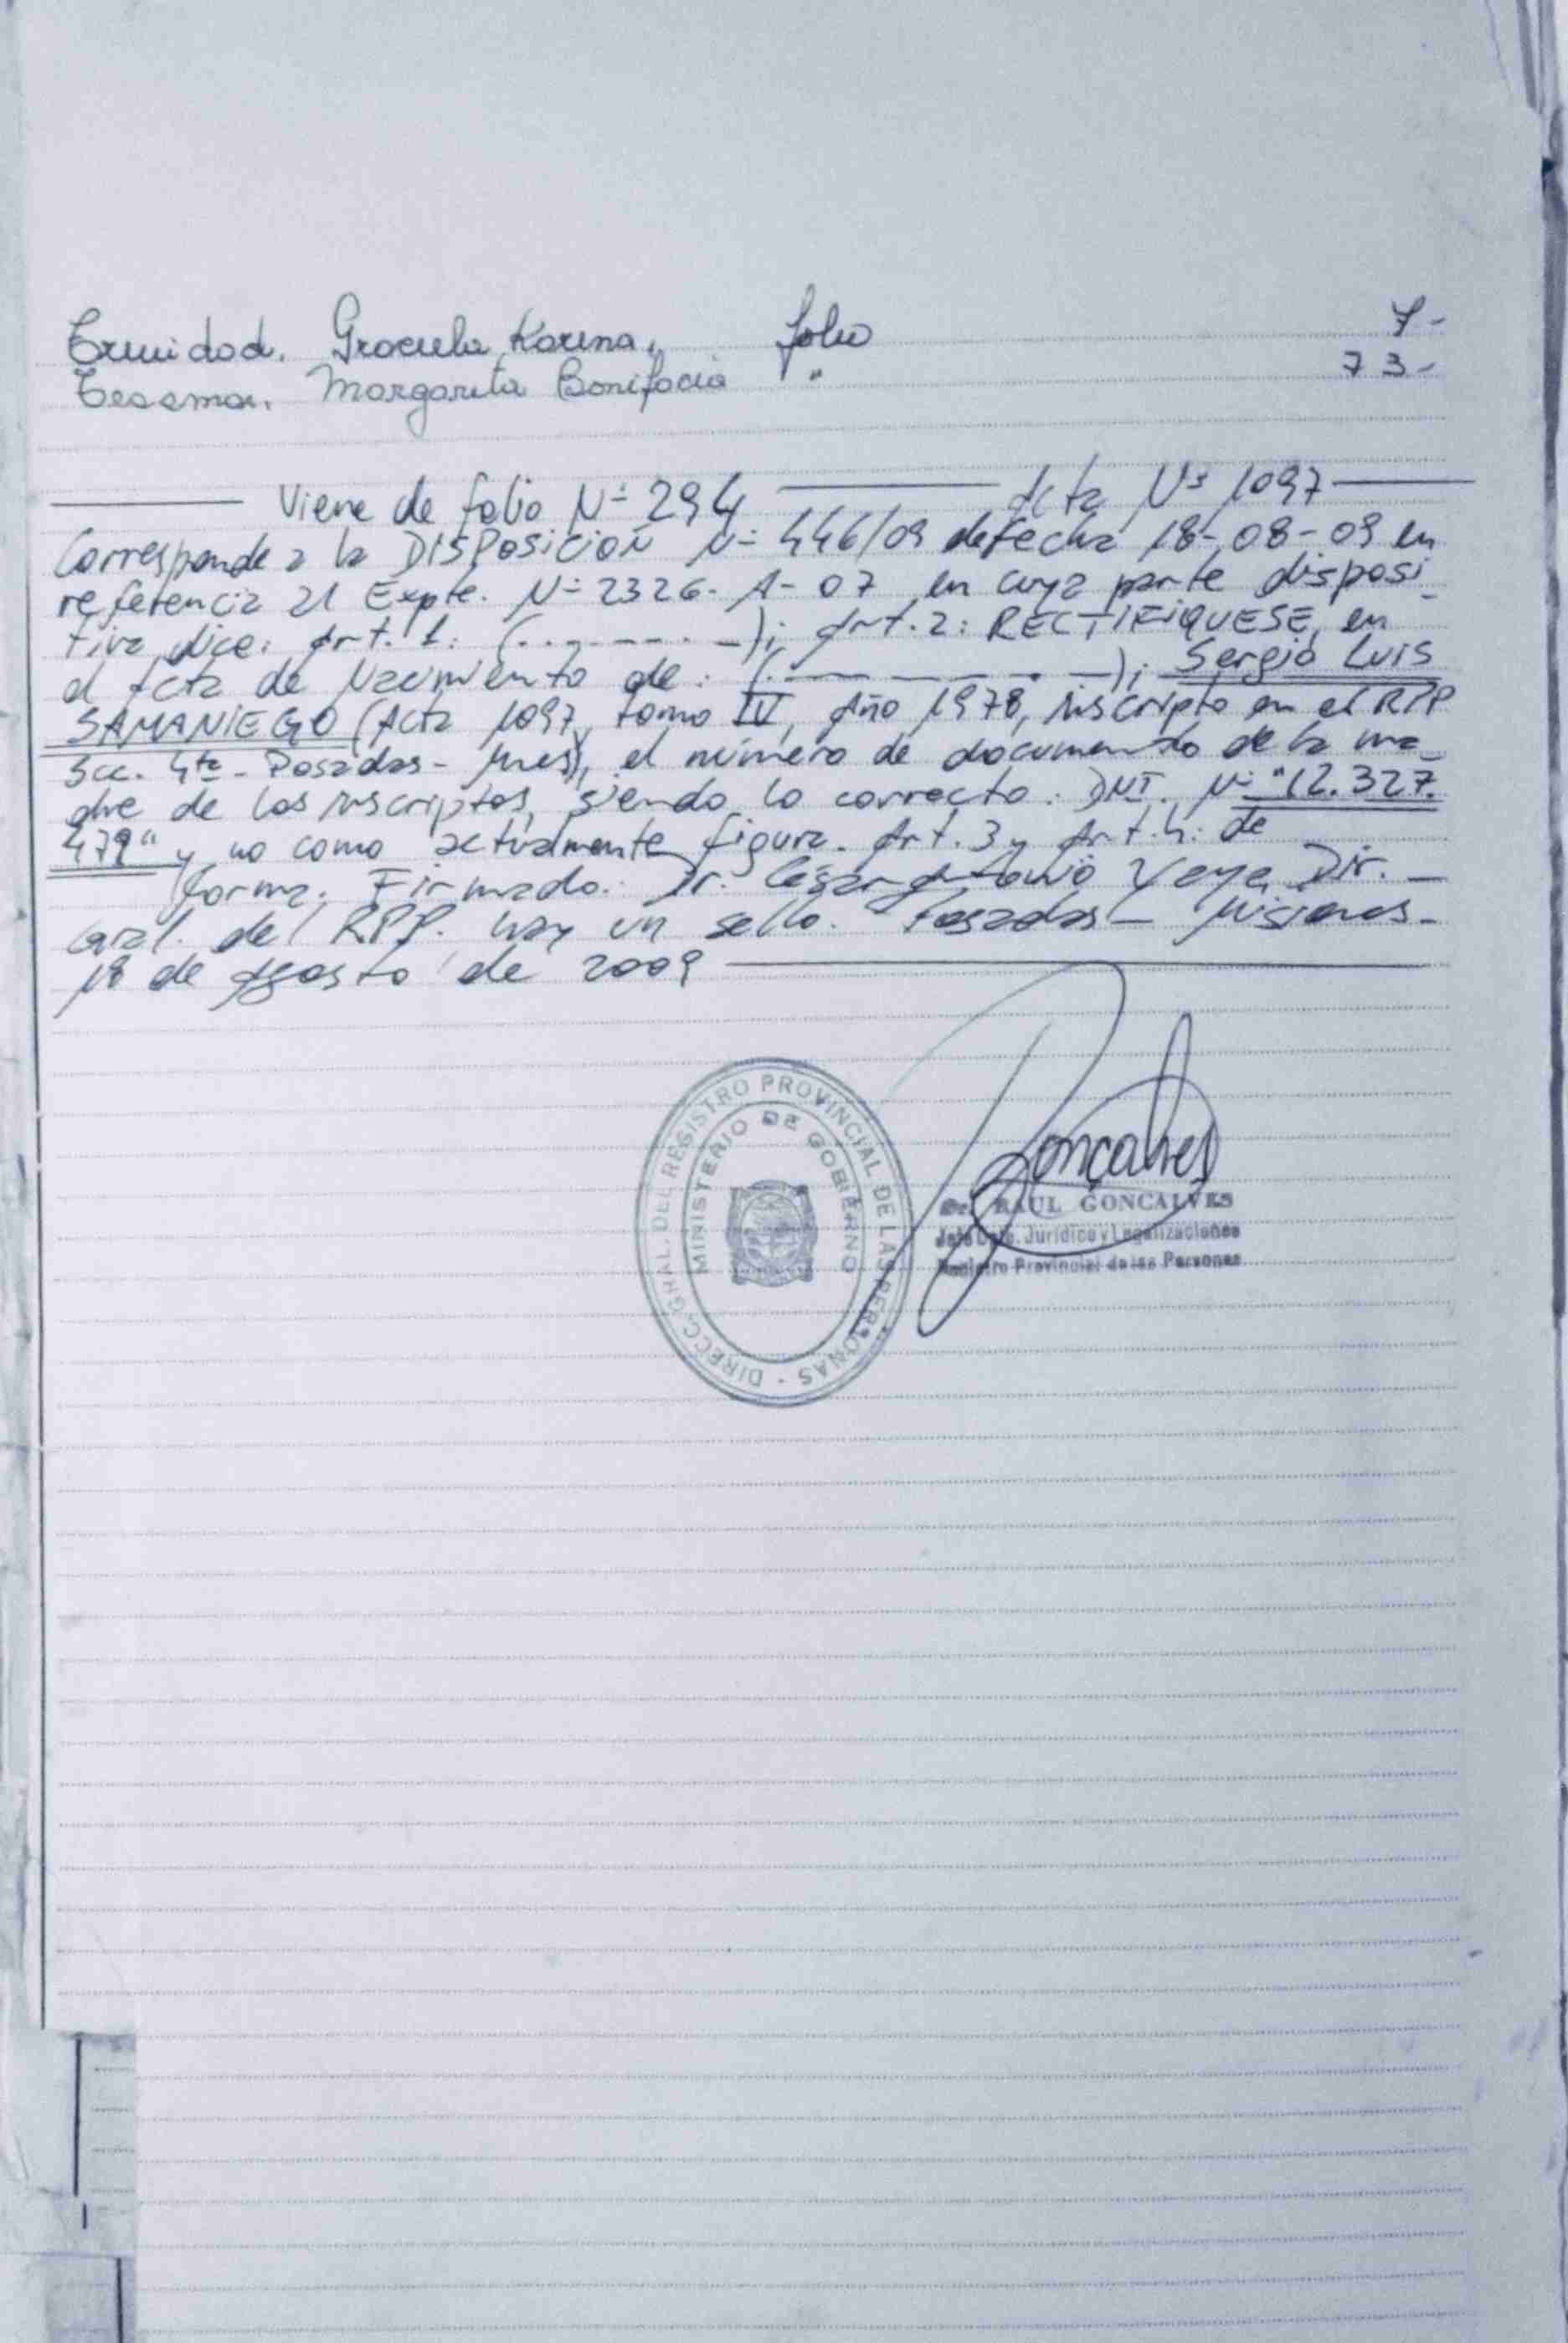 Trinidad. Graciela Karina. folio 7-
Margarita Bonifacia " 73-
Viene de folio Nº 294 Acta Nº 1097
Corresponde a la DISPOSICION Nº 446/09 de fecha 18-08-09 en
referencia al Expte. Nº 2326-A-07 en cuya parte disposi_
tiva dice: Art. 1: (..------.-); Art. 2: RECTIFIQUESE, en
el Acta de Nacimiento de: (.---- ----.--); Sergio Luis
SAMANIEGO (Acta 1097, tomo IV, Año 1978, inscripto en el RPP
Scc. 4ta - Posadas - Mnes), el número de documento de la ma_
dre de los inscriptos, siendo lo correcto: DNI. Nº "12.327.
479" y no como actualmente figura. Art. 3 y Art. 4: de
forma. Firmado: Dr. Cesar Antonio Dir. _
Gral. del RPP. hay un sello. Posadas - Misiones -
18 de Agosto de 2009
DIRECC. GRAL. DEL REGISTRO PROVINCIAL DE LAS PERSONAS -
MINISTERIO DE GOBIERNO
Goncalves
Dr. RAUL GONCALVES
Jefe Dpto. Jurídico y Legalizaciones
Registro Provincial de las Personas